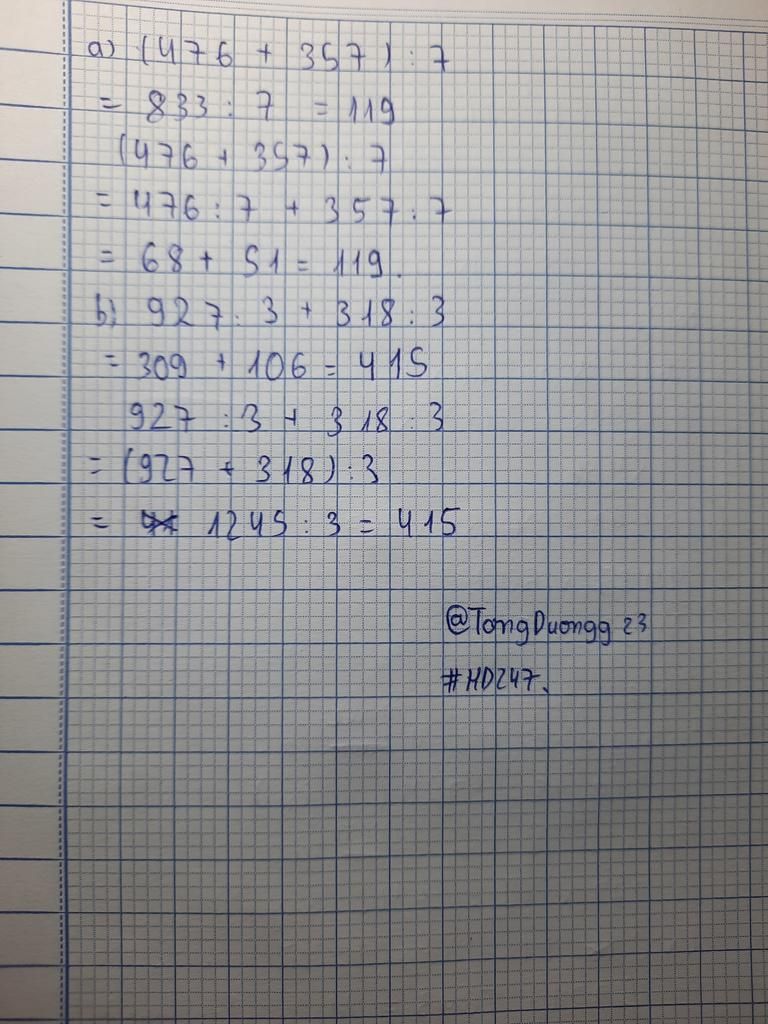 a) (476 + 357) : 7
= 833 : 7 = 119
(476 + 357) : 7
= 476 : 7 + 357 : 7
= 68 + 51 = 119.
b) 927 : 3 + 318 : 3
= 309 + 106 = 415
927 : 3 + 318 : 3
= (927 + 318) : 3
= 1245 : 3 = 415
@TongDuongg 23
#HD247.